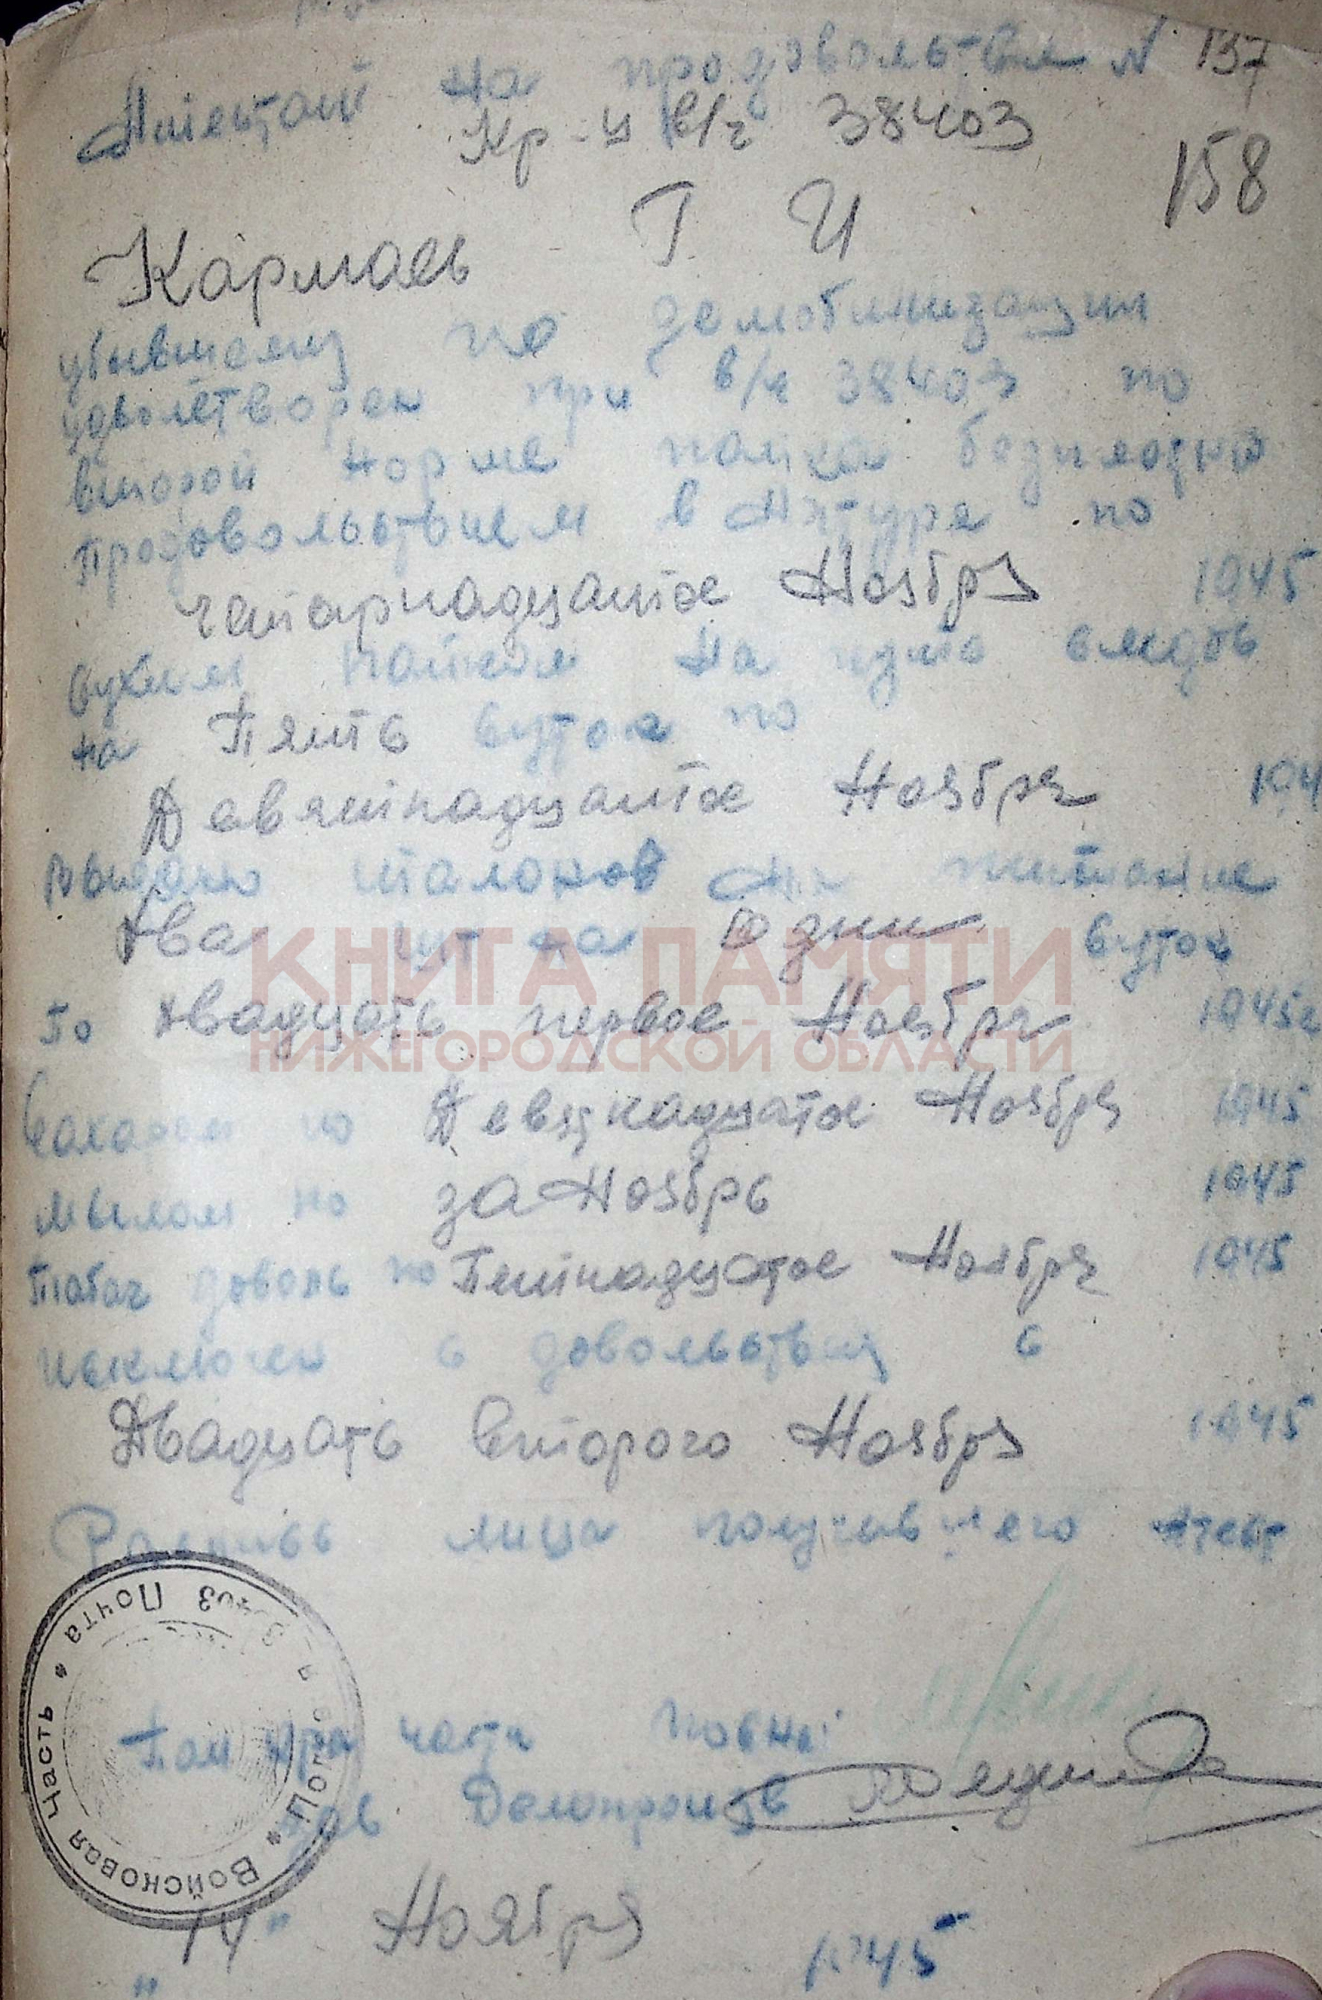 Аттестат на продовольствие N 137
Кр-ц в/ч 38403
158
Кармаев Г И
убывшему по демобилизации
удволетворен при в/ч 38403 по
второй норме пайка
продовольствием в натуре по
Четырнадцатое Ноября 1945
сухим пайком на путь следов
на Пять суток по
Девятнадцатое Ноября 194
Выдано талонов на питание
Два шт на Одни суток
По двадцать первое Ноября 1945г
Сахаром по Девятнадцатое Ноября 1945
мылом по за Ноябрь 1945
Табач доволь по Пятнадцатое Ноября 1945
исключен с довольствия с
Двадцать второго Ноября 1945
Роспись лица получившего аттест
Пом к-ра части по снаб
Зав Делопроизв
"14" Ноября 1945
Войсковая Часть * Полевая Почта 38403 *
КНИГА ПАМЯТИ
НИЖЕГОРОДСКОЙ ОБЛАСТИ